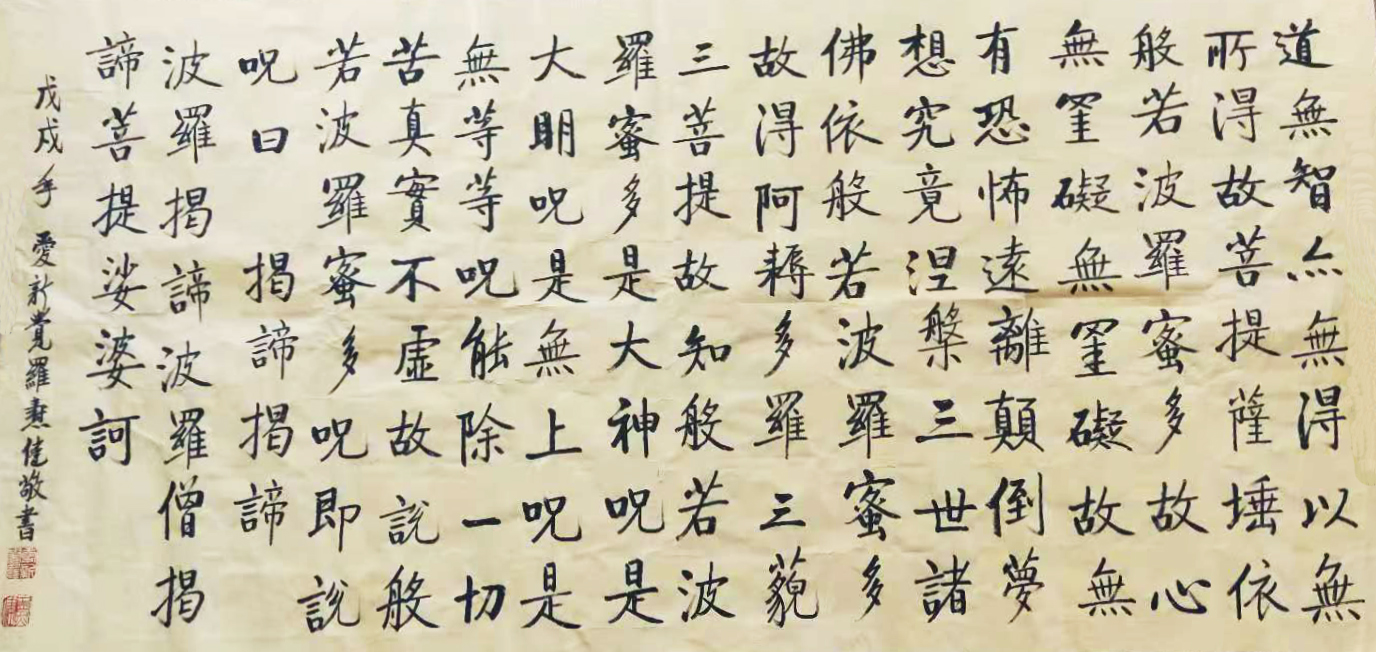 道無智亦無得以無
所得故菩提薩埵依
般若波羅蜜多故心
無罣礙無罣礙故無
有恐怖遠離顛倒夢
想究竟涅槃三世諸
佛依般若波羅蜜多
故得阿耨多羅三藐
三菩提故知般若波
羅蜜多是大神呪是
大明呪是無上呪是
無等等呪能除一切
苦真實不虚故説般
若波羅蜜多呪即説
呪曰 揭諦揭諦
波羅揭諦波羅僧揭
諦菩提娑婆訶
戊戌年 愛新覺羅 敬書